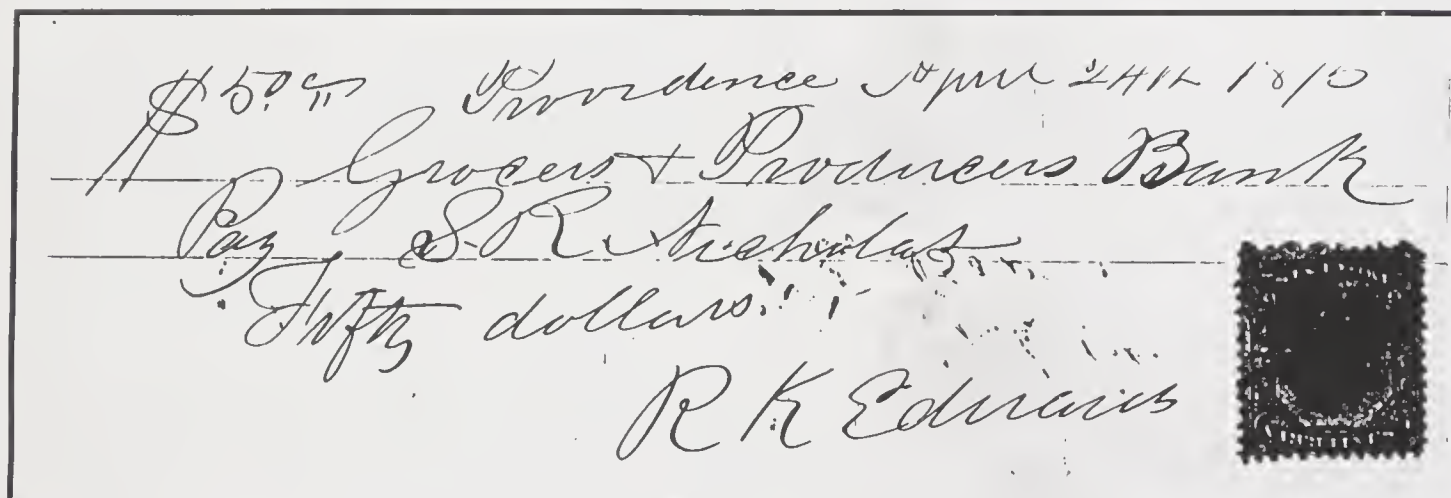 $50 Providence April 24th
Grocers + Producers Bank
Pay S. R. Nicholas
Fifty dollars.
R K Edwards